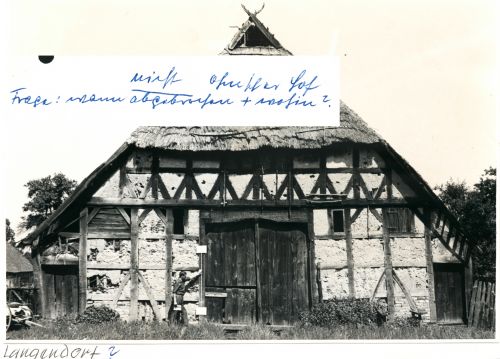 nicht ohnster Hof
Frage: wann abgebrochen + wohin?
Langendorf?